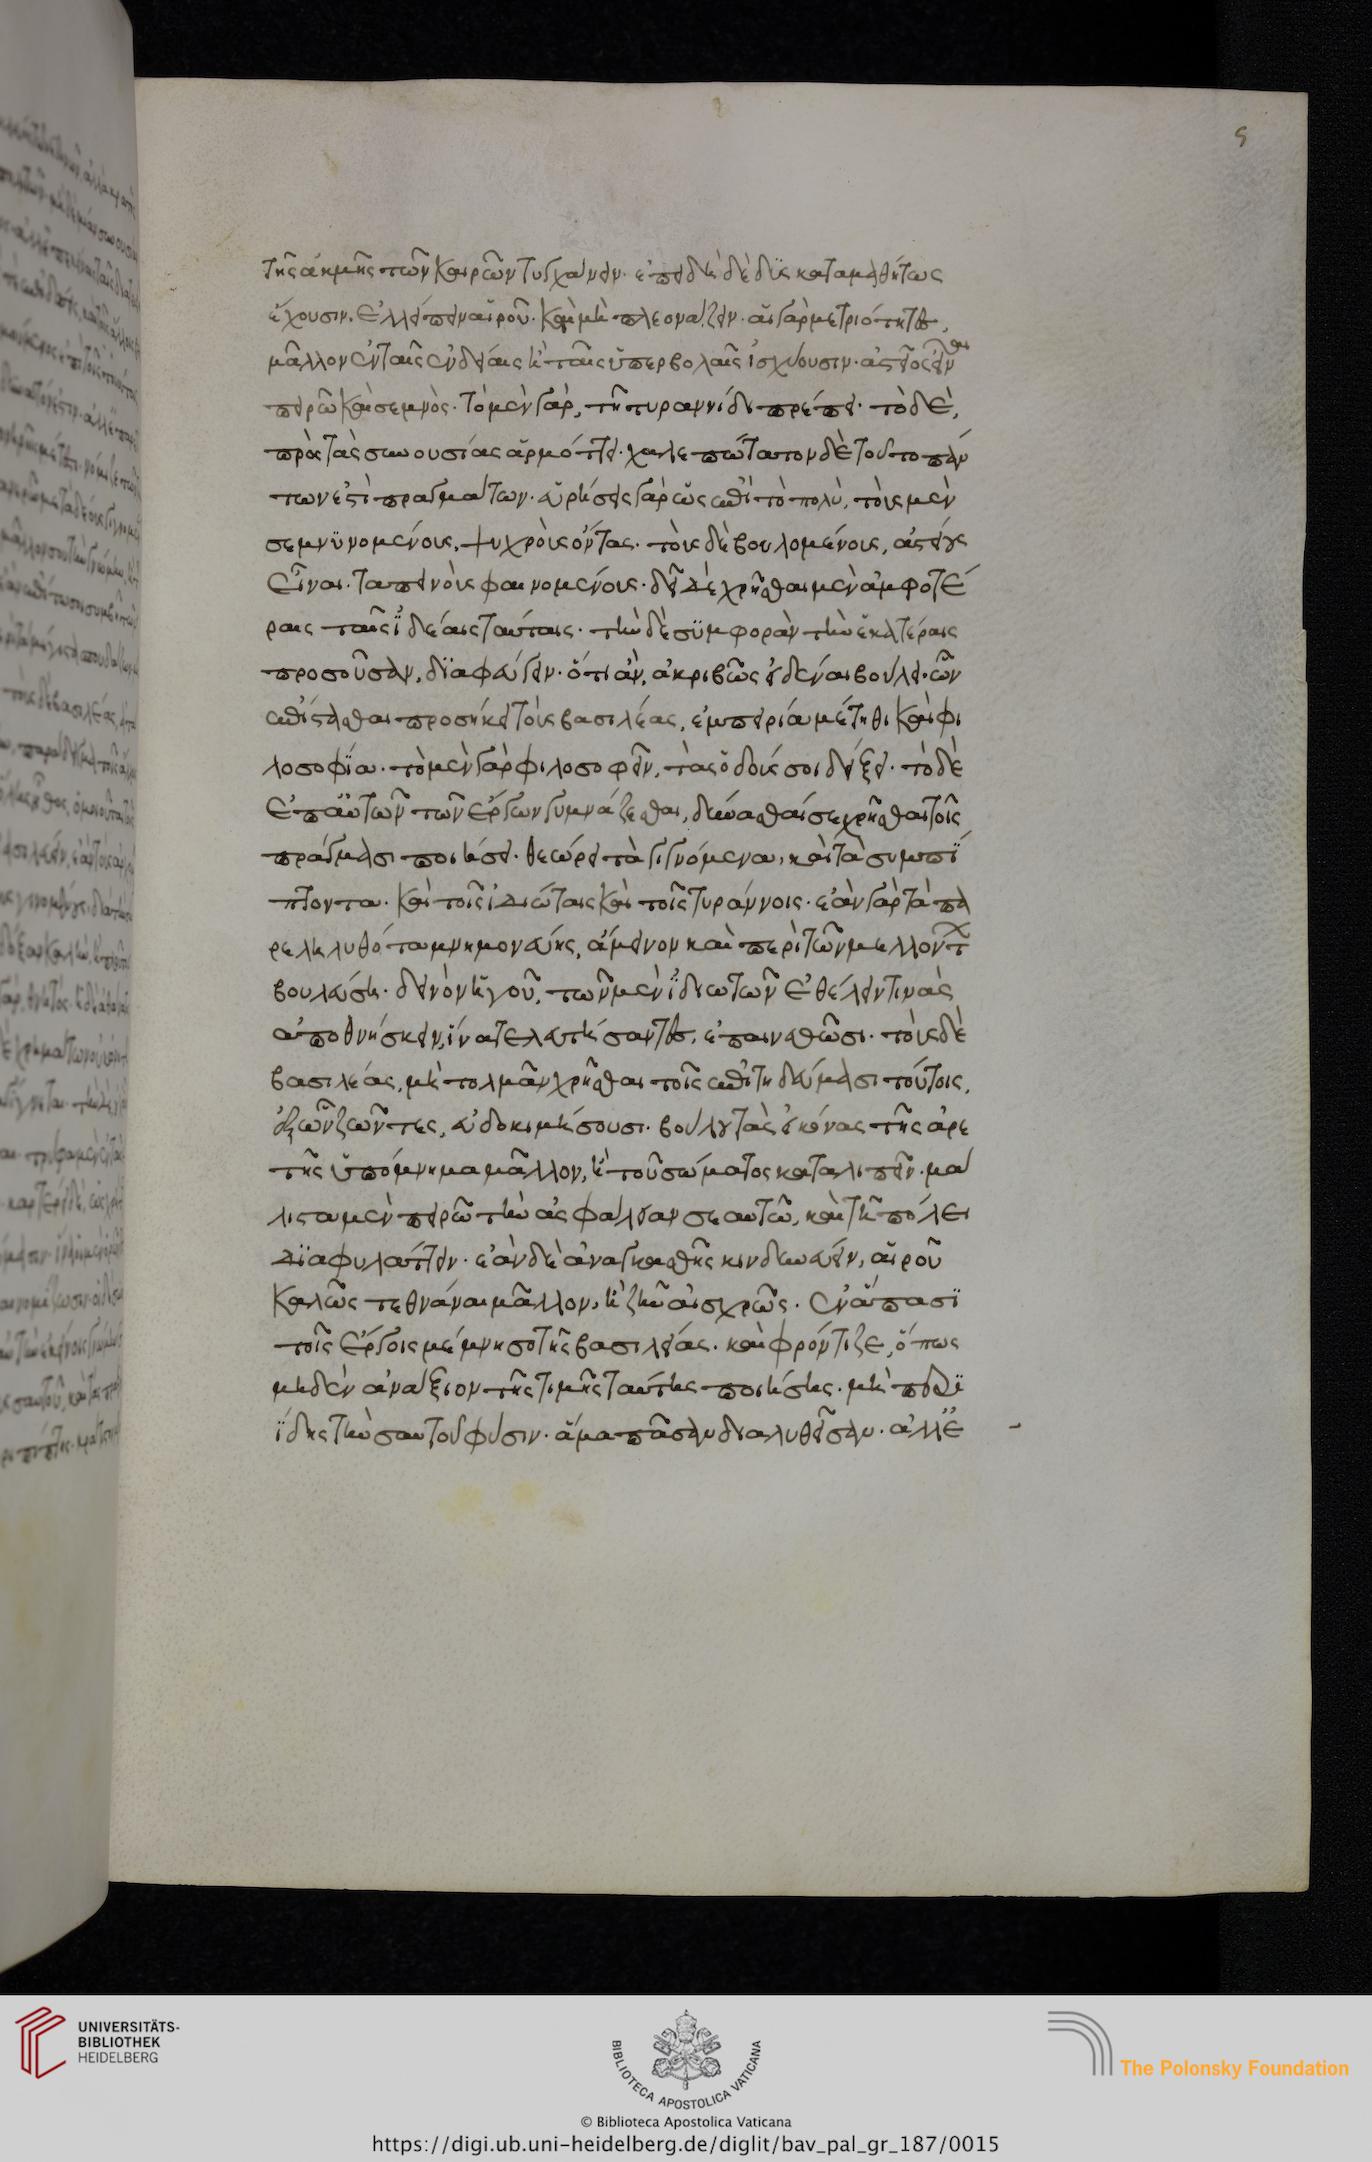 ς
τῆς ἀκμῆς τῶν καιρῶν τυγχάνειν· ἐπειδὴ δὲ δυσκαταμαθήτως
ἔχουσιν, ἐλλείπειν αἱροῦ· καὶ μὴ πλεονάζειν· αἱ γὰρ μετριότητες,
μᾶλλον ἐν ταῖς ἐνδείαις ἢ ταῖς ὑπερβολαῖς ἰσχύουσιν· ἀστεῖος εἶναι
πειρῶ καὶ σεμνός· τὸ μὲν γὰρ, τῇ τυραννίδι πρέπει· τὸ δὲ,
πρὸς τὰς συνουσίας ἁρμόττει· χαλεπώτατον δὲ τοῦτο πάν
των ἐστὶ πραγμάτων· εὑρήσεις γὰρ ὡς ἐπὶ τὸ πολύ, τοὺς μὲν
σεμνυνομένους, ψυχροὺς ὄντας· τοὺς δὲ βουλομένους, ἀστείους
εἶναι· ταπεινοὺς φαινομένους· δεῖ δὲ χρῆσθαι μὲν ἀμφοτέ
ραις ταῖς ἰδέαις ταύταις· τὴν δὲ συμφορὰν τὴν ἑκατέραις
προσοῦσαν, διαφεύγειν· ὅτι ἂν, ἀκριβῶσαι βουληθῇς ὧν
ἐπίστασθαι προσήκει τοὺς βασιλέας, ἐμπειρία μέτιθι καὶ φι
λοσοφία· τὸ μὲν γὰρ φιλοσοφεῖν, τὰς ὁδούς σοι δείξει· τὸ δὲ
ἐπ' αὐτῶν τῶν ἔργων γυμνάζεσθαι, δύνασθαί σε χρῆσθαι τοῖς
πράγμασι ποιήσει· θεώρει τὰ γιγνόμενα, καὶ τὰ συμπί
πτοντα· καὶ τοῖς ἰδιώταις καὶ τοῖς τυράννοις· ἐὰν γὰρ τὰ πα
ρεληλυθότα μνημονεύῃς, ἄμεινον καὶ περὶ τῶν μελλόντ
βουλεύσῃ· δεινὸν ἡγοῦ, τῶν μὲν ἰδιωτῶν ἐθέλειν τινὰς
ἀποθνήσκειν, ἵνα τελευτήσαντες, ἐπαινεθῶσι· τοὺς δὲ
βασιλέας, μὴ τολμᾶν χρῆσθαι τοῖς ἐπιτηδεύμασι τούτοις,
ἐξ ὧν ζῶντες, εὐδοκιμήσουσι· βούλου τὰς εἰκόνας τῆς ἀρε
τῆς ὑπόμνημα μᾶλλον, ἢ τοῦ σώματος καταλιπεῖν· μά
λιστα μὲν πειρῶ τὴν ἀσφάλειαν σεαυτῶ, καὶ τῇ πόλει
διαφυλάττειν· ἐὰν δὲ ἀναγκασθῇς κινδυνεύειν, αἱροῦ
καλῶς τεθνάναι μᾶλλον, ἢ ζῆν αἰσχρῶς· ἐν ἅπασι
τοῖς ἔργοις μέμνησο τῆς βασιλείας· καὶ φρόντιζε, ὅπως
μηδὲν ἀνάξιον τῆς τιμῆς ταύτης ποιήσῃς· μὴ περι
ΐδῃς τὴν σαυτοῦ φύσιν· ἅμα πᾶσαν διαλυθεῖσαν· ἀλλ' ἐ
UNIVERSITÄTS-
BIBLIOTHEK
HEIDELBERG
BIBLIOTECA APOSTOLICA VATICANA
© Biblioteca Apostolica Vaticana
The Polonsky Foundation
https://digi.ub.uni-heidelberg.de/diglit/bav_pal_gr_187/0015